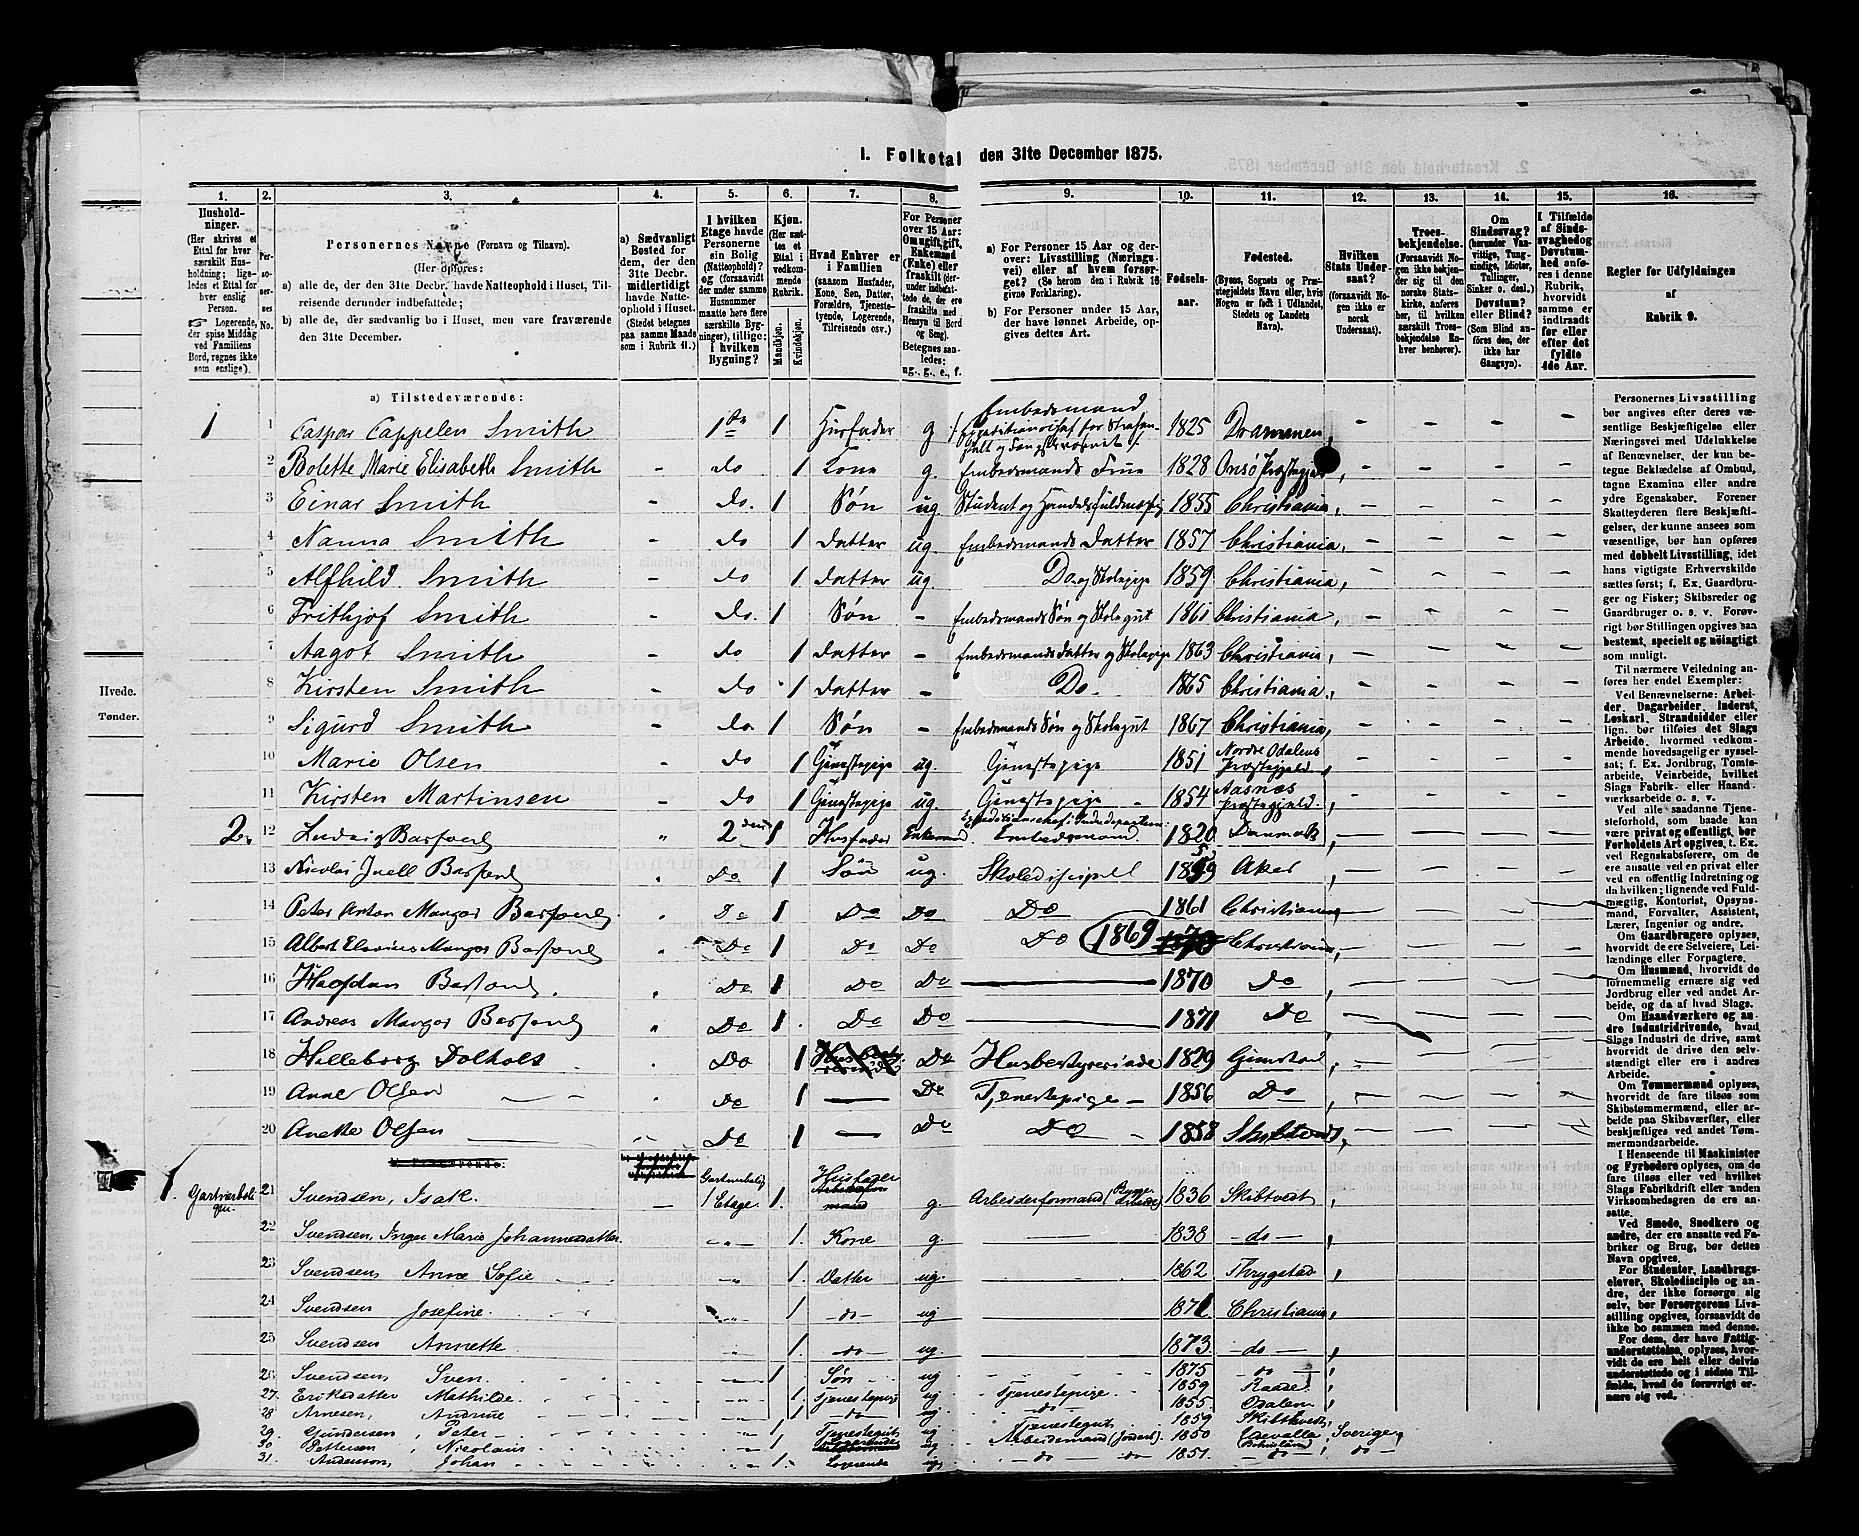 I. Folketal den 31te December 1875.
2. Kreaturhold den 31te December 1875.
1. 2. 3. 4. 5. 6. 7. 8. 9. 10. 11. 12. 13. 14. 15. 16.
Husholdninger.
(Her skrives et Ettal for hver særskilt Husholdning; ligeledes et Ettal for hver enslig Person.
☞ Logerende, der spise Middag ved Familiens Bord, regnes ikke som enslige).
Personernes No.
Personernes Navne (Fornavn og Tilnavn).
(Her opføres:
a) alle de, der den 31te Decbr. havde Natteophold i Huset, Tilreisende derunder indbefattede;
b) alle de, der sædvanlig bo i Huset, men vare fraværende den 31te December.
a) Sædvanligt Bosted for dem, der den 31te Decbr. midlertidigt havde Natteophold i Huset.
(Stedet betegnes paa samme Maade som i Rubrik 11.)
I hvilken Etage havde Personerne sin Bolig (Natteophold)?
og (forsaavidt der under samme Husnummer maatte høre flere særskilte Bygninger), tillige: i hvilken Bygning?
Kjøn.
(Her sættes et Ettal i vedkommende Rubrik.
Mandkjøn.
Kvindekjøn.
Hvad Enhver er i Familien
(saasom Husfader, Kone, Søn, Datter, Forældre, Tjenestetyende, Logerende, Tilreisende osv.)
For Personer over 15 Aar: Om ugift, gift, Enkemand (Enke) eller fraskilt
Betegnes saaledes: ug., g., e., f.
a) For Personer 15 Aar og derover: Livsstilling (Næringsvei) eller af hvem forsørget? (Se herom den i Rubrik 16 givne Forklaring).
b) For Personer under 15 Aar, der have lønnet Arbeide, opgives dettes Art.
Fødselsaar.
Fødested.
(Byens, Sognets og Præstegjeldets Navn, eller, hvis Nogen er født i Udlandet, Stedets og Landets Navn).
Hvilken Stats Undersaat?
(forsaavidt Nogen ikke er norsk Undersaat).
Troesbekjendelse.
(Forsaavidt Nogen ikke bekjender sig til den norske Statskirke, anføres her, til hvilken særskilt Troesbekjendelse Enhver henhører).
Om Sindssvag?
(herunder Vanvittige, Tungsindige, Idioter, Tullinger, Sinker o. desl.)
Døvstum? eller Blind?
(Som Blind anføres den, der ikke har Gangsyn).
I Tilfælde af Sindssvaghed og Døvstumhed anføres i denne Rubrik, hvorvidt samme er indtraadt før eller efter det fyldte 4de Aar.
Regler for Udfyldningen
af
Rubrik 9.
a) Tilstedeværende:
1 1 Caspar Cappelen Smith 1ste 1 Husfader g Embedsmand 1825 Drammen
2 Bolette Marie Elisabeth Smith - do 1 Kone g. Embedsmands Frue 1828 Onsø Præstegjeld
3 Einar Smith - do. 1 Søn ug. Student og 1855 Christiania,
4 Nanna Smith - do 1 datter ug. Embedsmands datter 1857 Christiania,
5 Alfhild Smith - do 1. datter ug. Do og Skolepige 1859. Christiania,
6 Frithjof Smith - do. 1 Søn - Embedsmands Søn og Skolegut 1861 Christiania,
7 Aagot Smith - do 1 datter - Embedsmands datter og Skolepige 1863 Christiania,
8 Kirsten Smith - do 1 datter - Do. 1865 Christiania.
9 Sigurd Smith - do 1 Søn - Embedsmands Søn og Skolegut 1867 Christiania,
10 Marie Olsen - do 1 Tjenestepige ug. Tjenestepige 1851 Nordre Odalens Præstegjeld.
11 Kirsten Martinsen - do 1 Tjenestepige ug. Tjenestepige - 1854 Aasnæs Præstegjeld.
2. 12 Ludvig Barfoed 2den 1 Husfader Enkemand Embedsmand. 1820 Danmark
13 Nicolai Juell Barfoed Do 1 Søn ug. Skolediscipel 1859 Aker
14 Peter Anton Mangor Barfoed. Do 1 Do Do Do 1861 Christiania
15 Albert Mangor Barfoed Do 1 Do Do Do 1869 Christiania
16 Barfoed. Do 1 Do Do 1870 Do
17 Andreas Mangor Barfoed Do 1. Do Do 1871 Do
18 Hilleborg Do 1 Do Husbestyrerinde 1829 Grimstad
19 Anne Olsen Do 1 Do Tjenestepige - 1856 Do
20 Anette Olsen Do 1 Do Do 1858 Skibtvedt,
1. 21 Svendsen, Isak. 1 Etage. 1. Husfader g. Arbeidsformand 1836 Skibtvedt
22 Svendsen, Inger Marie Johannesdatter 1. Kone g. 1838 - do -
23 Svendsen Anne Sofie 1. Datter ug. 1862 Thrygstad
24 Svendsen Josefine. 1 - do - ug 1871. Christiania
25 Svendsen Annette 1. do ug. 1873. - do -
26 Svendsen Sven. 1 Søn ug 1875 - do -
27. Eriksdatter Mathilde. 1. Tjenestepige ug Tjenestepige 1859 Raade
28 Arnesen, Andrine 1 - do - ug. - do - 1855. Odalen
29. Gundersen, Peter 1 Tjenestegut ug Tjenestegut 1859 Skibthvedt,
30 Pettersen, Nicolaus 1 Logerende ug Arbeidsmand (Jordarb). 1850 Udevalla, Sverige
31. Andersson, Johan 1. Logerende ug. do do 1851. do do
Personernes Livsstilling bør angives efter deres væsentlige Beskjæftigelse eller Næringsvei med Udelukkelse af Benævnelser, der kun betegne Beklædelse af Ombud, tagne Examina eller andre ydre Egenskaber. Forener Skatteyderen flere Beskjæftigelser, der kunne ansees som væsentlige, bør han opføres med dobbelt Livsstilling, idet hans vigtigste Erhvervskilde sættes først; f. Ex. Gaardbruger og Fisker; Skibsreder og Gaardbruger o. s. v. Forøvrigt bør Stillingen opgives saa bestemt, specielt og nöiagtigt som muligt.
Til nærmere Veiledning anføres her endel Exempler:
Ved Benævnelserne: Arbeider, Dagarbeider, Inderst, Løskarl, Strandsidder eller lign. bør tilføies det Slags Arbeide, hvormed vedkommende hovedsagelig er sysselsat; f. Ex. Jordbrug, Tomtearbeide, Veiarbeide, hvilket Slags Fabrik- eller Haandværksarbeide o. s. v.
Ved alle saadanne Tjenesteforhold, som baade kan være privat og offentligt, bør Forholdets Art opgives, t. Ex. ved Regnskabsførere, om de ere ansatte ved en privat eller ved en offentlig Indretning og da hvilken; lignende ved Fuldmægtig, Kontorist, Opsynsmand, Forvalter, Assistent, Lærer, Ingeniør og andre.
Om Gaardbrugere oplyses, hvorvidt de ere Selveiere, Leilændinge eller Forpagtere.
Om Husmænd, hvorvidt de fornemmelig ernære sig ved Jordbrug eller ved andet Arbeide, og da af hvad Slags.
Om Haandværkere og andre Industridrivende, hvad Slags Industri de drive, samt hvorvidt de drive den selvstændigt eller ere i andres Arbeide.
Om Tømmermænd oplyses, hvorvidt de fare tilsøs som Skibstømmermænd, eller arbeide paa Skibsværfter, eller beskjæftiges ved andet Tømmermandsarbeide.
I Henseende til Maskinister og Fyrbødere oplyses, om de fare tilsøs eller ved hvilket Slags Fabrikdrift eller anden Virksomhedsgren de ere ansatte.
Ved Smede, Snedkere og andre, der ere ansatte ved Fabriker og Brug, bør dettes Navn opgives.
For Studenter, Landbrugselever, Skoledisciple og andre, der ikke forsørge sig selv, bør Forsørgerens Livsstilling opgives, forsaavidt de ikke bo sammen med denne.
For dem, der have Fattigunderstøttelse, oplyses, hvorvidt de ere helt eller delvis understøttede og i sidste Tilfælde, hvad de forøvrigt ernære sig ved.
Hvede.
Tønder.